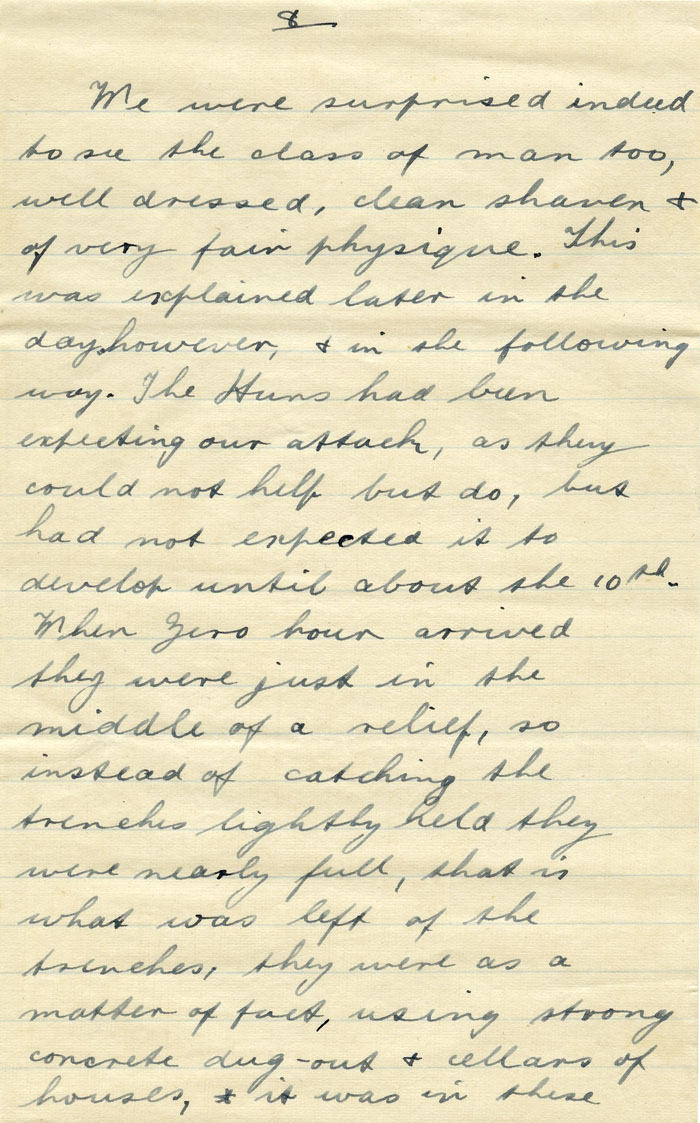 8
We were surprised indeed
to see the class of man too,
well dressed, clean shaven &
of very fair physique. This
was explained later in the
day, however, & in the following
way. The Huns had been
expecting our attack, as they
could not help but do, but
had not expected it to
develop until about the 10th.
When Zero hour arrived
they were just in the
middle of a relief, so
instead of catching the
trenches lightly held they
were nearly full, that is
what was left of the
trenches; they were as a
matter of fact, using strong
concrete dug-out & cellars of
houses, & it was in these